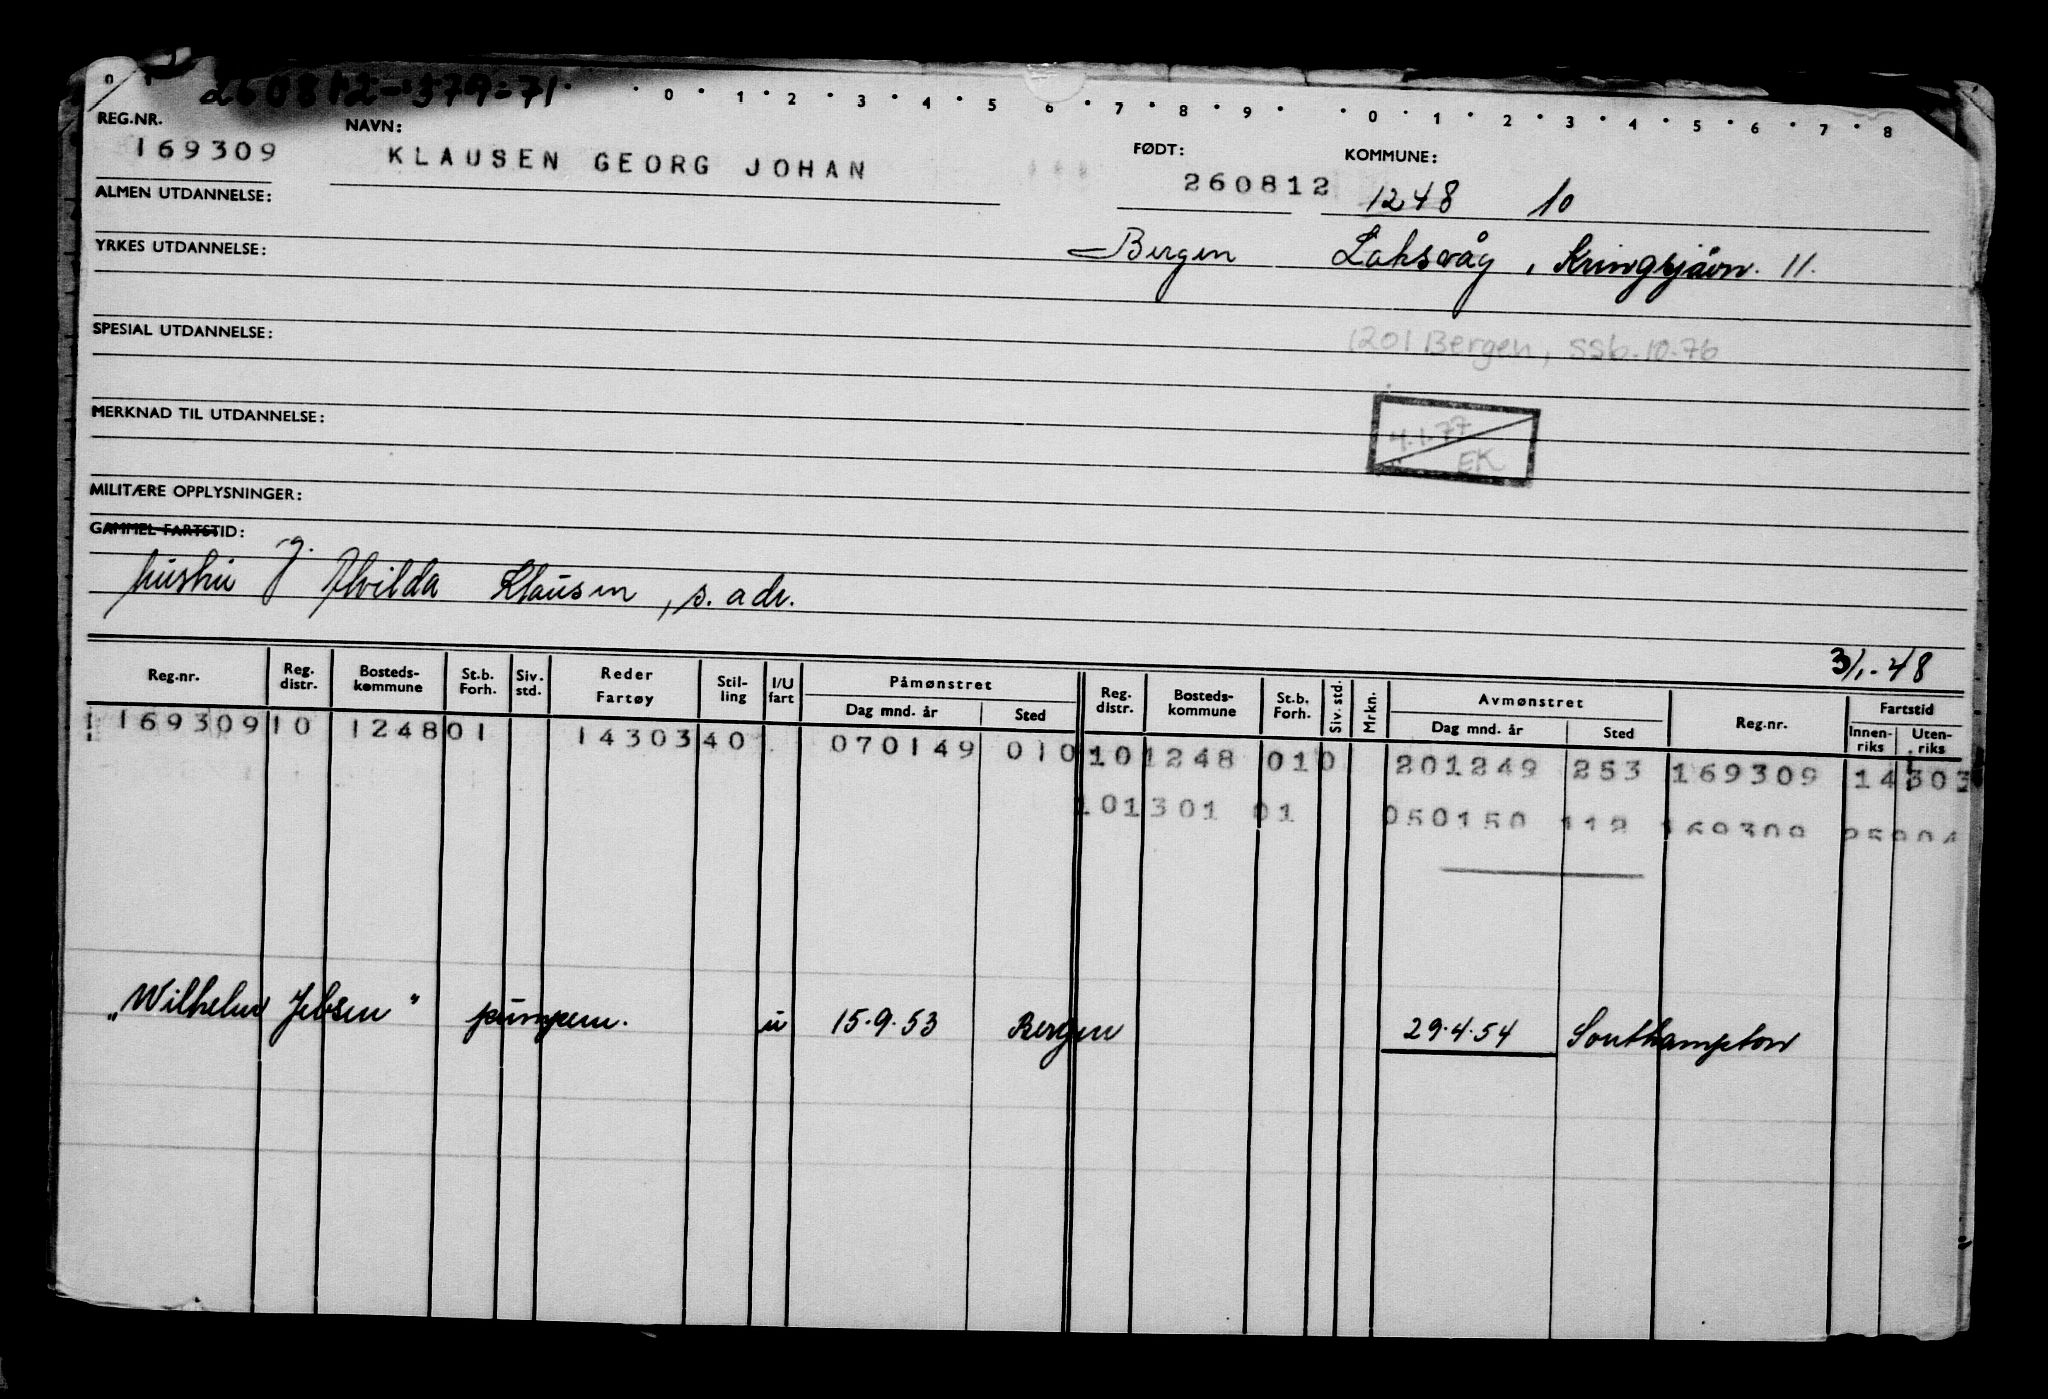 0 1 260812-379=71 · 0 · 1 · 2 · 3 · 4 · 5 · 6 · 7 · 8 · 9 · · 0 · 1 · 2 · 3 · 4 · 5 · 6 · 7 · 8
REG.NR. NAVN: FØDT: KOMMUNE:
169309 KLAUSEN GEORG JOHAN 260812 1248 10
ALMEN UTDANNELSE:
YRKES UTDANNELSE: Bergen Laksevåg, Kringsjåvn. 11.
SPESIAL UTDANNELSE: 1201 Bergen, ssb.10.76
MERKNAD TIL UTDANNELSE: 4.1.77
EK
MILITÆRE OPPLYSNINGER:
GAMMEL FARTSTID:
hustru g. Alvilda Klausen, s. adr.
3/1.-48
Reg.nr. Reg. distr. Bosteds-kommune St.b. Forh. Siv. std. Reder Fartøy Stil-ling I/U fart Påmønstret Dag mnd. år Sted Reg. distr. Bosteds-kommune St.b. Forh. Siv. std. Mrkn. Avmønstret Dag mnd. år Sted Reg.nr. Fartstid Innen-riks Uten-riks
169309 10 1248 01 14303 40 070149 010 10 1248 010 201249 253 169309 14303
10 1301 01 050150 112 169309
"Wilhelm Jebsen" pumpem. u 15.9.53 Bergen 29.4.54 Southampton